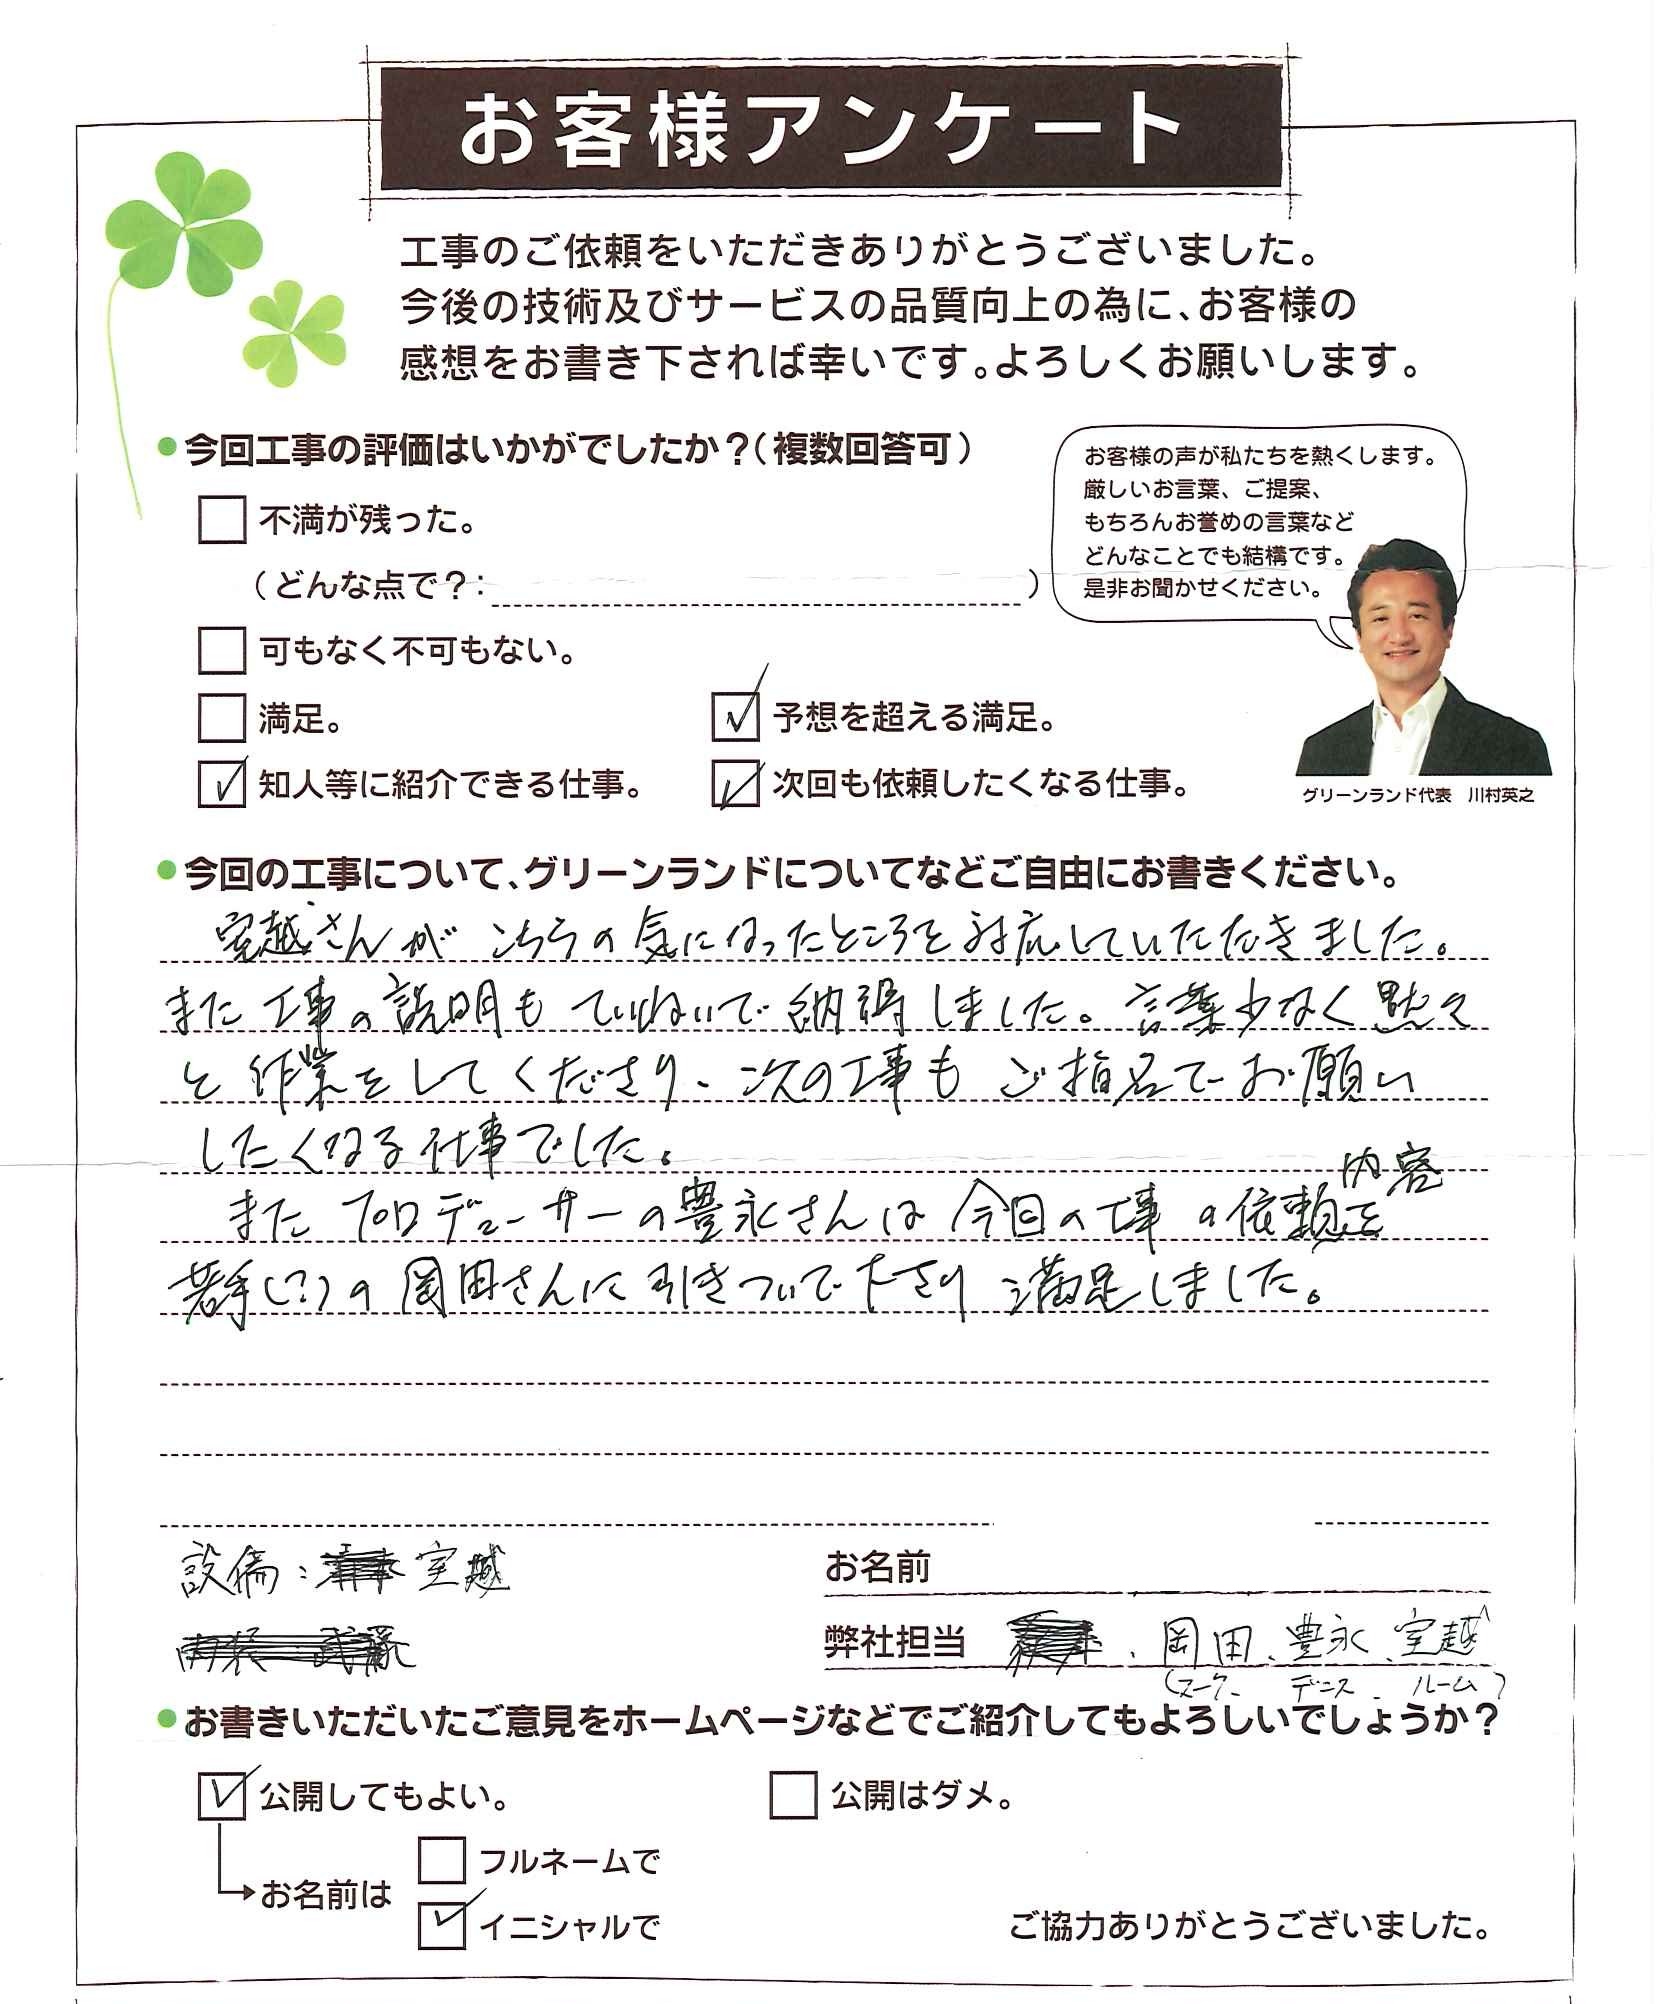 お客様アンケート
工事のご依頼をいただきありがとうございました。
今後の技術及びサービスの品質向上の為に、お客様の
感想をお書き下されば幸いです。よろしくお願いします。
今回工事の評価はいかがでしたか？（複数回答可）
お客様の声が私たちを熱くします。
厳しいお言葉、ご提案、
もちろんお誉めの言葉など
どんなことでも結構です。
是非お聞かせください。
不満が残った。
（どんな点で？：）
可もなく不可もない。
満足。
予想を超える満足。
知人等に紹介できる仕事。
次回も依頼したくなる仕事。
グリーンランド代表 川村英之
今回の工事について、グリーンランドについてなどご自由にお書きください。
室越さんが こちらの気になったところを対応していただきました。
また工事の説明も ていねいで納得しました。言葉少なく黙々
と作業をしてくださり、次の工事も ご指名でお願い
したくなる仕事でした。
また プロデューサーの豊永さんは 今回の工事の依頼内容を
若手(?)の岡田さんに引きついで下さり 満足しました。
設備：室越
お名前
弊社担当 、岡田、豊永、室越
(スーク、デニス、ルーム)
お書きいただいたご意見をホームページなどでご紹介してもよろしいでしょうか？
公開してもよい。
公開はダメ。
お名前は
フルネームで
イニシャルで
ご協力ありがとうございました。